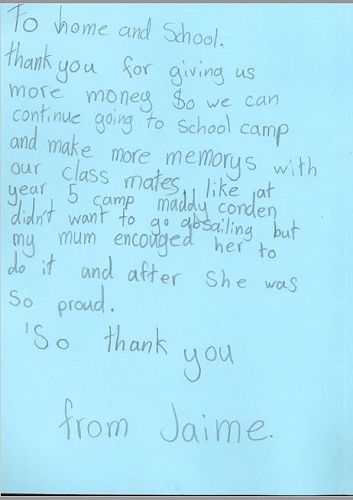 To home and School.
thank you for giving us
more money So we can
continue going to School camp
and make more memorys with
our class mates, like at
year 5 camp maddy conden
didn't want to go absailing but
my mum encouged her to
do it and after She was
So proud.
So thank you
from Jaime.